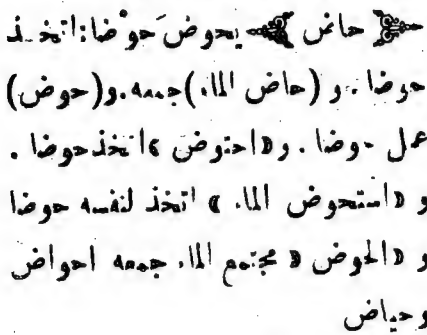 حاض يحوض حوْضا: اتخذ
حوضا . و (حاض الماء) جمعه . و (حوض)
عمل حوضا . و « احتوض » اتخذ حوضا .
و « استحوض الماء » اتخذ لنفسه حوضا
و « الحوض » مجتمع الماء جمعه احواض
وحياض